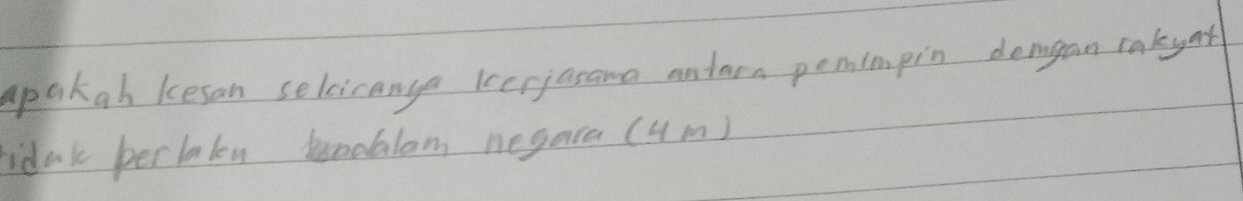 apakah kesan sekiranya kerjasama antara pemimpin dengan rakyat
tidak berlaku dalam negara (4m)